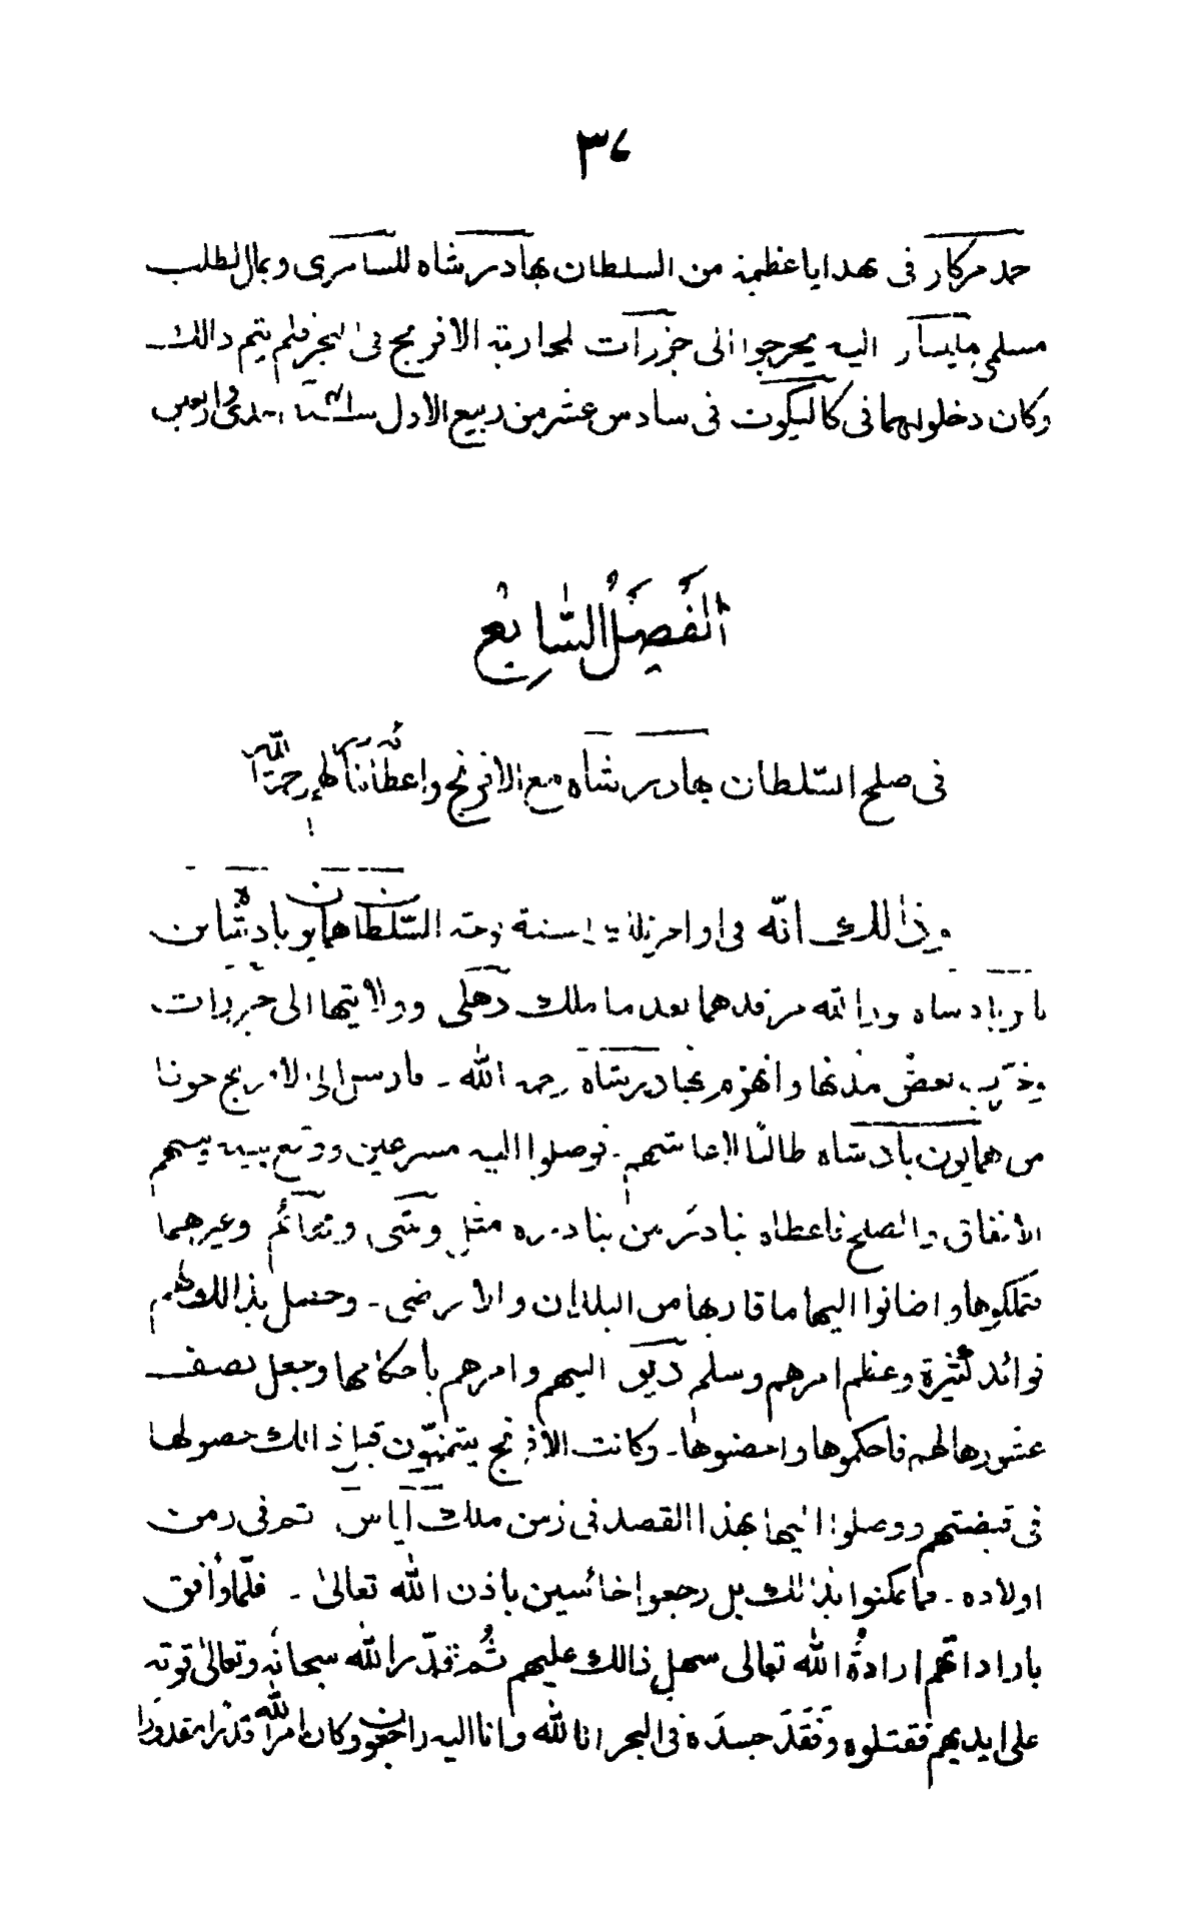 ٣٧
حمد مركار فى هدايا عظيمة من السلطان بهادر شاه للسامرى وبمال لطلب
مسلمى مليبار اليه يخرجوا الى جزرات لمحاربة الافرنج فى البحر فلم يتم ذالك
وكان دخولهما فى كاليكوت فى سادس عشر من ربيع الاول سنة احدى واربعين
الفَصْلُ السَّابِعُ
فى صلح السّلطان بهادر شاه مع الافرنج واعطائه بنادر لهم رحمة الله
وذالك انّه فى اواخر سنة توجه السّلطان همايون بادشاه بن
بابر بادشاه بعد ما ملك دهلى وولايتها الى جزرات
وخرّب بعض مدنها وانهزم بهادر شاه رحمه الله - فارسل الى الافرنج خوفا
من همايون بادشاه طالبًا لاعانتهم - فوصلوا اليه مسرعين ووقع بينه وبينهم
الاتفاق والصلح فاعطاه بنادر من بنادره مثل وسَّى ومهائم وغيرهما
فتملكوها واضافوا اليها ما قاربها من البلدان والاراضى - وحصل بذالك لهم
فوائد كثيرة وعظم امرهم وسلم ديو اليهم وامرهم باحكامها وجعل نصف
عشورها لهم فاحكموها واحضنوها - وكانت الافرنج يتمنّون قبل ذالك حصولها
فى قبضتهم ووصلوا اليها بهذا القصد فى زمن ملك اياس ثم فى زمن
اولاده - فما تمكنوا بذالك بل رجعوا خائسين باذن الله تعالىٰ - فلمّا وافق
باراداتهم ارادةُ الله تعالى سهل ذالك عليهم ثُم قدّر الله سبحانه وتعالىٰ قوته
على ايديهم فقتلوه وفَقَدَ جسدَه فى البحر انا لله وانا اليه راجعون وكان امر الله قدرا مقدورا